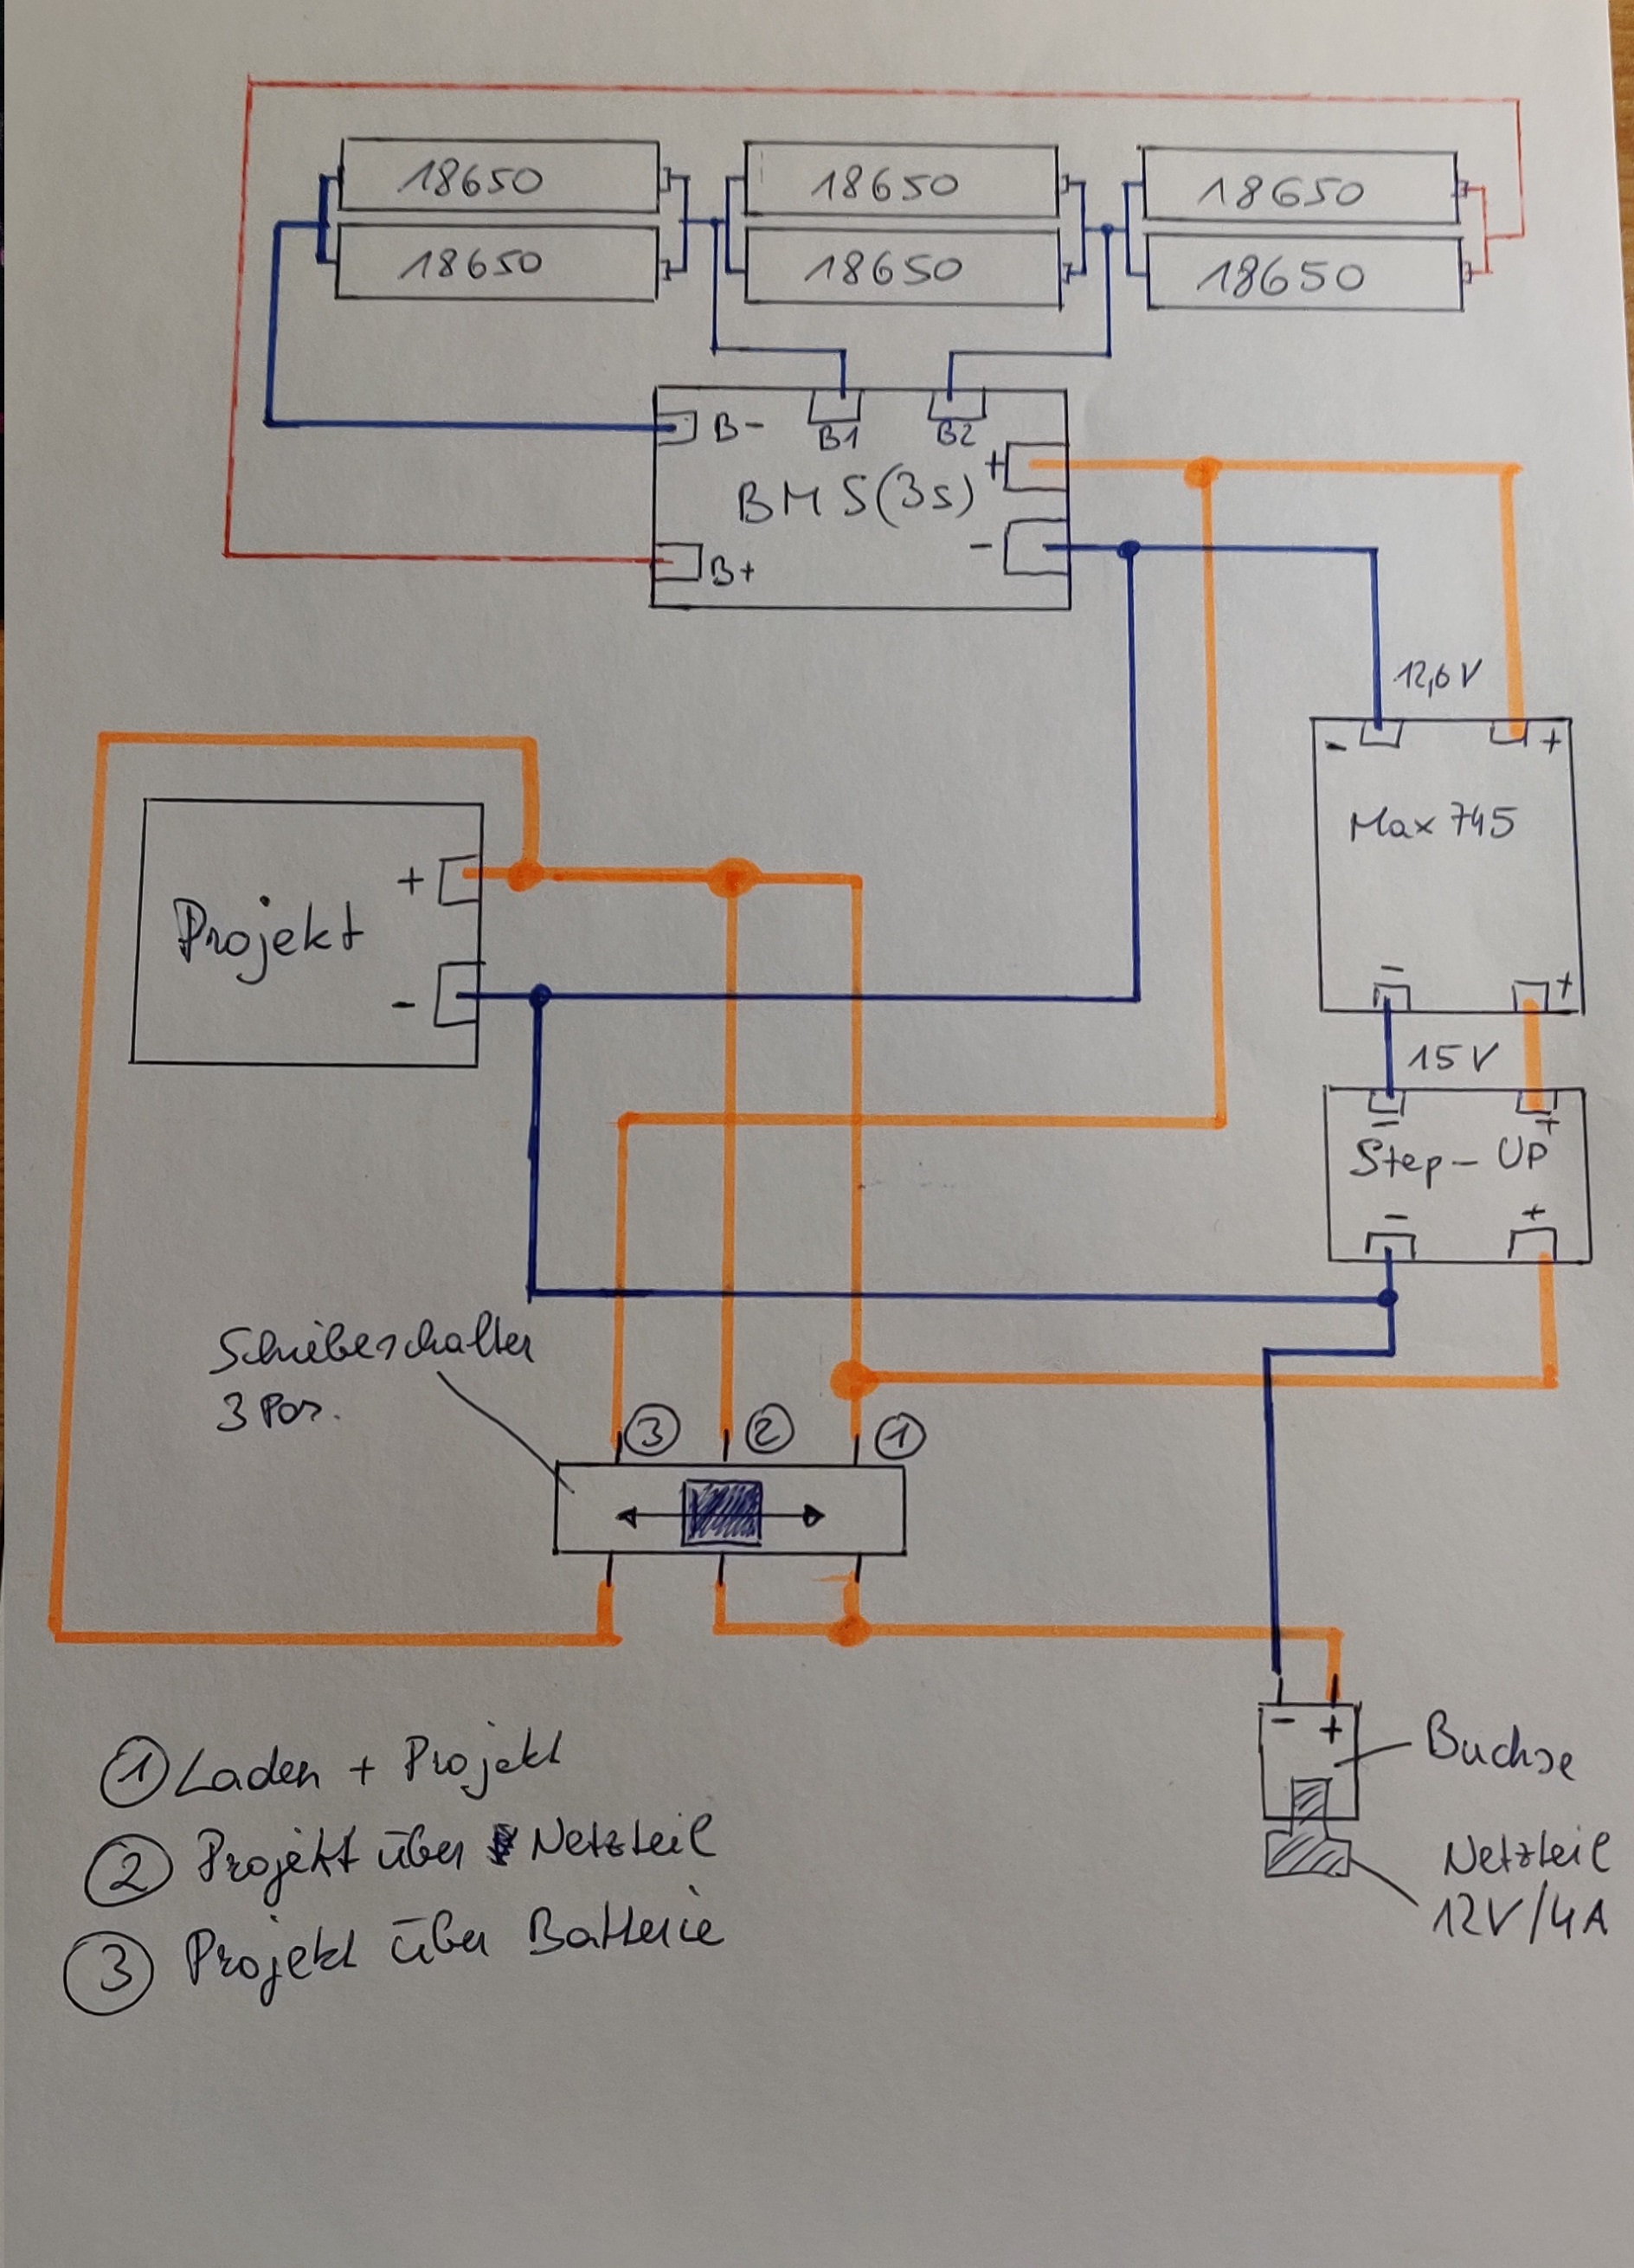 18650
18650
18650
18650
18650
18650
B-
B1
B2
+
BMS(3s)
-
B+
12,6V
-
+
Max 745
+
Projekt
-
-
+
15V
-
+
Step-UP
-
+
Schiebeschalter
3 Pos.
3
2
1
-
+
Buchse
Netzteil
12V/4A
1 Laden + Projekt
2 Projekt über Netzteil
3 Projekt über Batterie